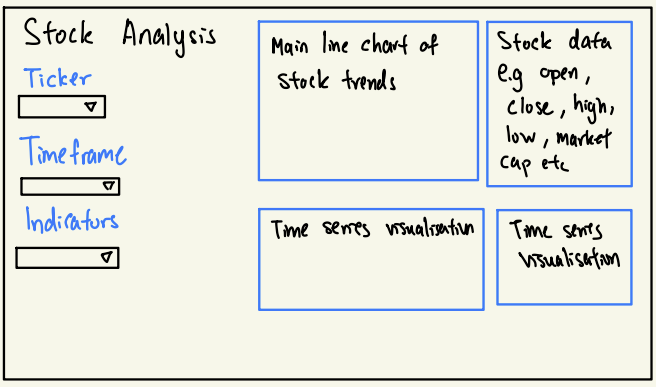 Stock Analysis
Ticker
Timeframe
Indicators
Main line chart of
stock trends
Stock data
e.g open,
close, high,
low, market
cap etc
Time series visualisation
Time series
visualisation